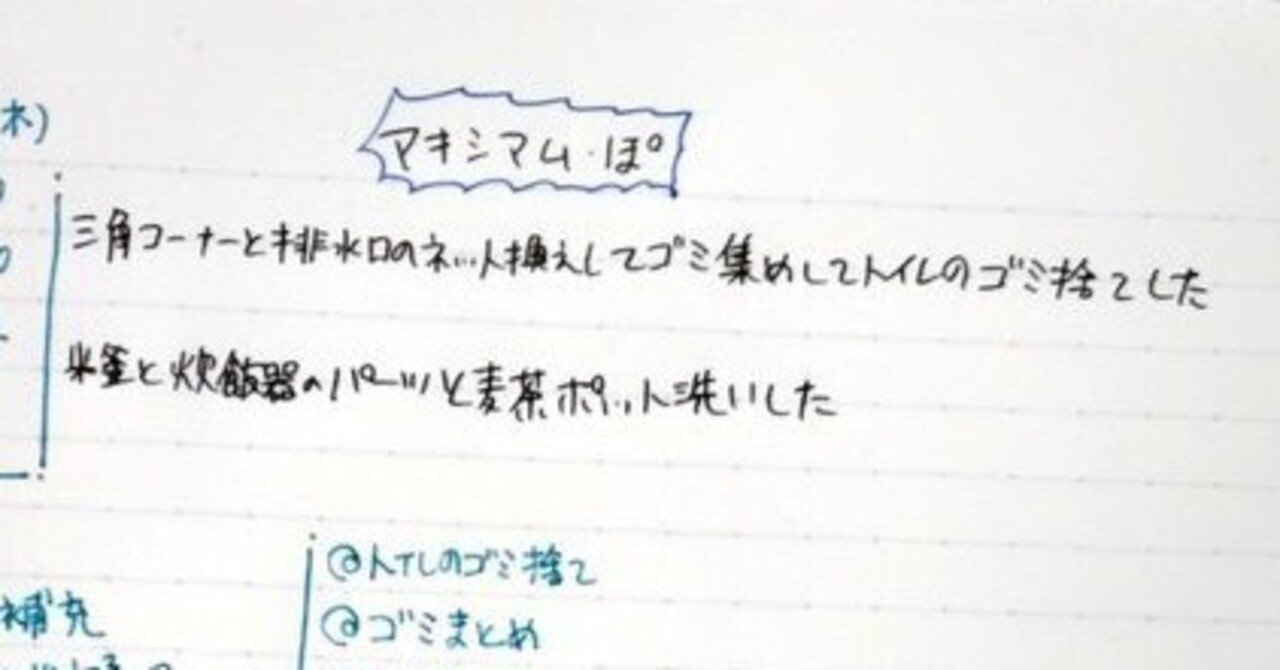 木)
アキシマム・ぽ
三角コーナーと排水口のネット換えしてゴミ集めしてトイレのゴミ捨てした
米釜と炊飯器のパーツと麦茶ポット洗いした
@トイレのゴミ捨て
補充
@ゴミまとめ